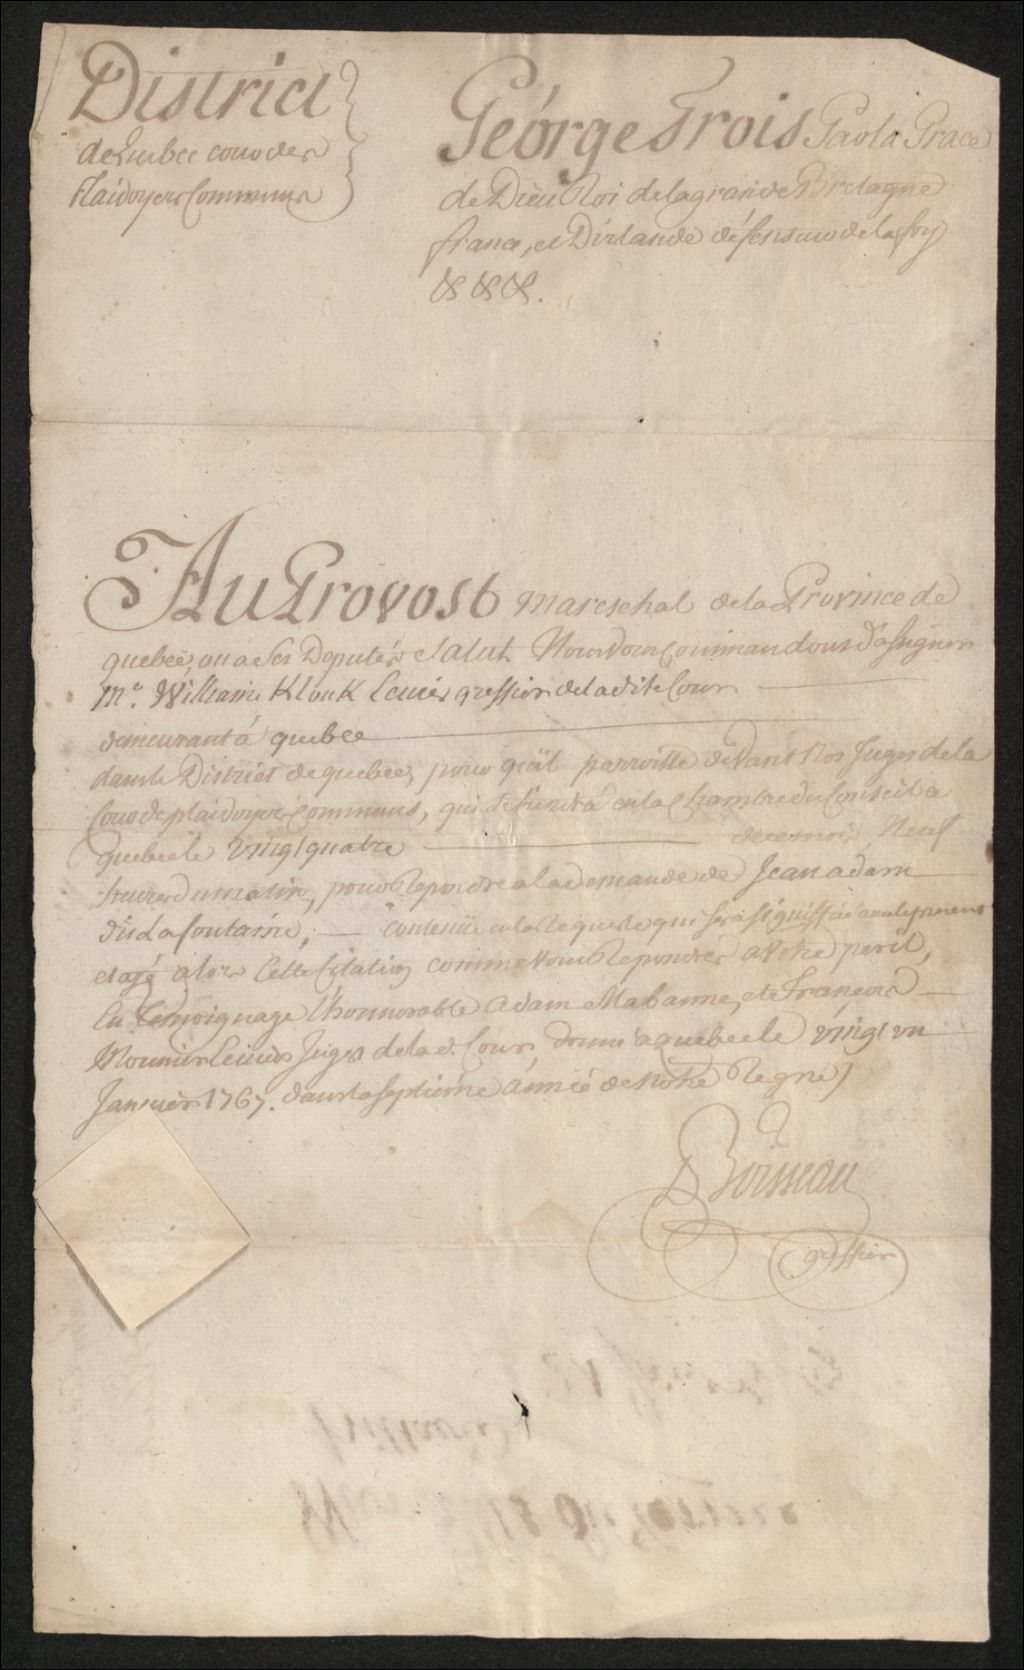 District
de Quebec cour des
Plaidoyers Communs
George Trois Par la Grace
de Dieu Roi de la grande Bretagne
france, et D'irlande défenseur de la foy
&c &c &c.
Au Provost mareschal de la Province de
quebec, ou a Ses Deputés Salut Nous vous Commandons d'assigner
Mr. William Klouk Ecuier greffier de la dite Cour
demeurant á quebec
dans le District de quebec, pour qu'il parroisse devant Nos Juges de la
Cour de plaidoyers communs, qui se tiendra en la Chambre du Conseil a
Quebec le vingt quatre de ce mois, Neuf
heures du matin, pour Repondre a la demande de Jean adam
dit Lafontaine, contenüe en la Requeste qui sera signiffiée
et ayé alors Cette Citation comme vous Repondrés a votre peril,
En Temoignage L'honnorable adam Mabanne, et françois
Mounier Ecuiers Juges de la d. Cour, donné a quebec le vingt un
Janvier 1767. dans la septiéme année de notre Regne
Boisseau
greffier